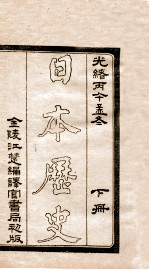 光緒丙午孟冬
下冊
日本歷史
金陵江楚編譯官書局初版